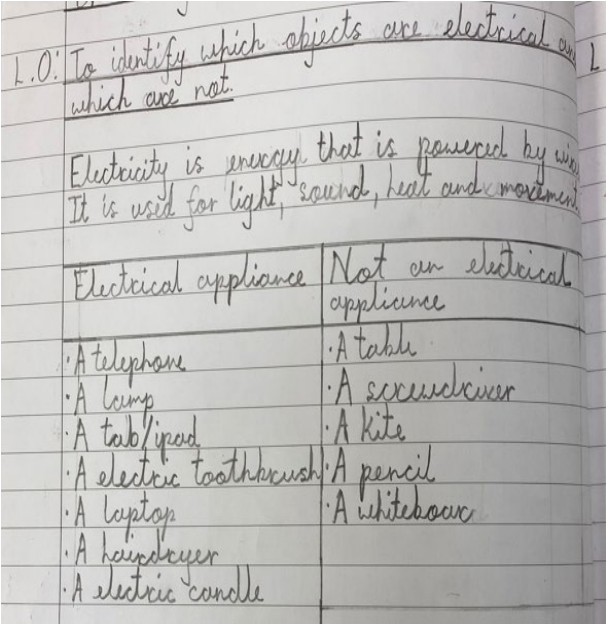 L.O: To identify which objects are electrical
which are not.
Electricity is energy that is powered by
It is used for light, sound, heat and movement
Electrical appliance | Not an electrical
appliance
· A telephone | · A table
· A lamp | · A screwdriver
· A tab/ipad | · A kite
· A electric toothbrush | · A pencil
· A laptop | · A whiteboard
· A hairdryer
· A electric candle
L